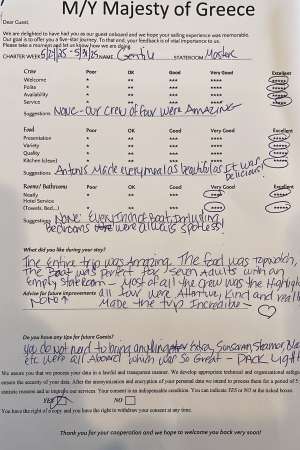 M/Y Majesty of Greece
Dear Guest,
We are delighted to have had you as our guest onboard and we hope your sailing experience was memorable.
Our goal is to offer you a five-star journey. To that end, your feedback is of vital importance to us.
Please take a moment and let us know how are doing.
CHARTER WEEK 5/24/25 - 5/31/25 NAME Gentile STATEROOM Master
Crew Poor OK Good Very Good Excellent
Welcome * ** *** **** *****
Polite * ** *** **** *****
Availability * ** *** **** *****
Service * ** *** **** *****
Suggestions None - Our crew of four were AMAZING
Food Poor OK Good Very Good Excellent
Presentation * ** *** **** *****
Variety * ** *** **** *****
Quality * ** *** **** *****
Kitchen (clean) * ** *** **** *****
Suggestions Antonis Made every meal as beautiful as it was delicious!
Rooms/ Bathrooms Poor OK Good Very Good Excellent
Neatly * ** *** **** *****
Hotel Service
(Towels, Bed...) * ** *** **** *****
Suggestions None. Everything Boat, Including
Bedrooms were always spotless!
What did you like during your stay?
The entire trip was Amazing. The food was topnotch,
The Boat was perfect for seven Adults with an
Empty Stateroom - Most of all the crew was the Highlight
Advice for future improvements all four were Attentive, Kind and really
None Made the trip Incredible -
Do you have any tips for future Guests?
You do not need to bring anything extra, Sunscreen, Shampoo,
etc were all Aboard which was so Great - PACK Light
We assure you that we process your data in a lawful and transparent manner. We develop appropriate technical and organizational
ensure the security of your data. After the anonymization and encryption of your personal data we intend to process them for a period of 5
statistic reasons and to upgrade our services. Your consent is an indispensable condition. You can indicate YES or NO at the ticked boxes
YES NO
You have the right of a copy and you have the right to withdraw your consent at any time.
Thank you for your cooperation and we hope to welcome you back very soon!